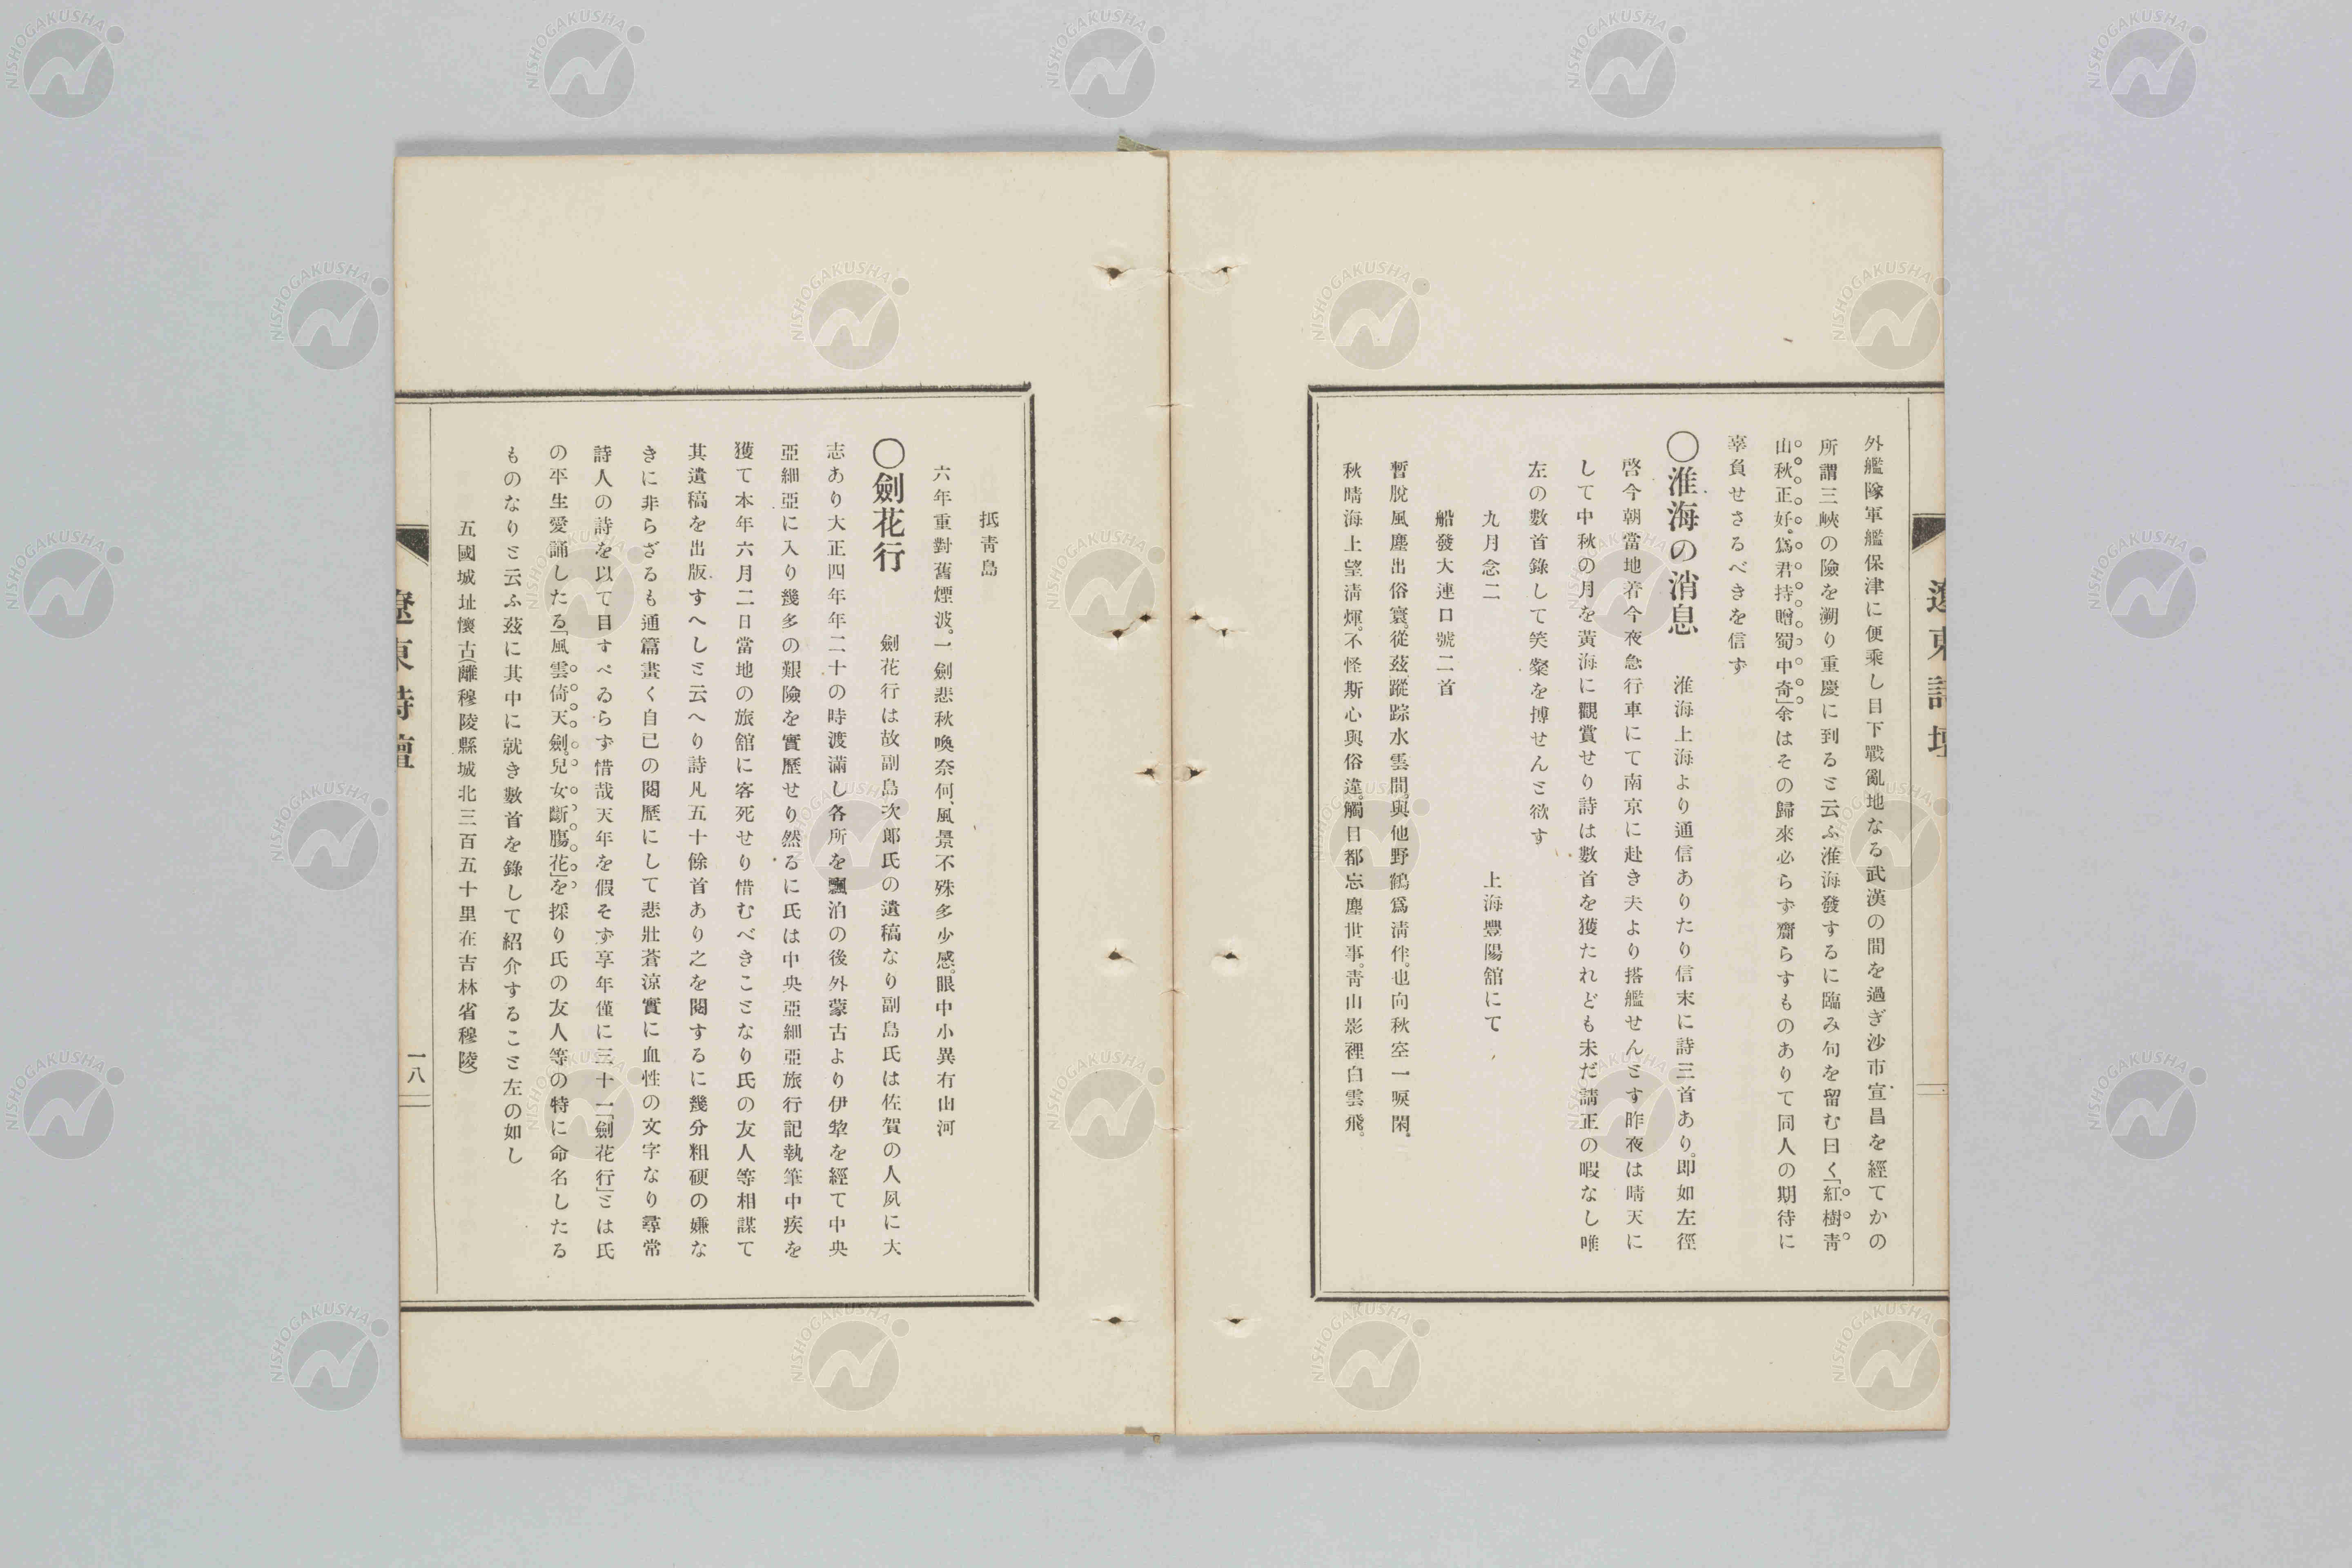 外艦隊軍艦保津に便乘し目下戰亂地なる武漢の間を過ぎ沙市宣昌を經てかの
所謂三峽の險を溯り重慶に到ると云ふ淮海發するに臨み句を留む曰く「紅樹靑
山秋正好。爲君持贈蜀中奇」余はその歸來必らず齎らすものありて同人の期待に
辜負せさるべきを信ず
〇淮海の消息　淮海上海より通信ありたり信末に詩三首あり。即如左徑
啓今朝當地着今夜急行車にて南京に赴き夫より搭艦せんとす昨夜は晴天に
して中秋の月を黃海に觀賞せり詩は數首を獲たれども未だ請正の暇なし唯
左の數首錄して笑粲を搏せんと欲す
九月念二　上海豐陽舘にて
船發大連口號二首
暫脫風塵出俗寰。從茲蹤踪水雲間。與他野鶴爲淸伴。也向秋空一唳閑。
秋晴海上望淸煇。不怪斯心與俗違。觸目都忘塵世事。靑山影裡白雲飛。
遼東詩壇
抵靑島
六年重對舊煙波。一劍悲秋喚奈何、風景不殊多少感。眼中小異有山河
〇劍花行　劍花行は故副島次郎氏の遺稿なり副島氏は佐賀の人夙に大
志あり大正四年年二十の時渡滿し各所を飄泊の後外蒙古より伊犂を經て中央
亞細亞に入り幾多の艱險を實歷せり然るに氏は中央亞細亞旅行記執筆中疾を
獲て本年六月二日當地の旅舘に客死せり惜むべきことなり氏の友人等相謀て
其遺稿を出版すへしと云へり詩凡五十餘首あり之を閱するに幾分粗硬の嫌な
きに非らざるも通篇畫く自己の閱歷にして悲壯蒼涼實に血性の文字なり尋常
詩人の詩を以て目すべゐらず惜哉天年を假そず享年僅に三十一「劍花行」とは氏
の平生愛誦したる「風雲倚天劍。兒女斷膓花」を採り氏の友人等の特に命名したる
ものなりと云ふ茲に其中に就き數首を錄して紹介すること左の如し
五國城址懷古(離穆陵縣城北三百五十里在吉林省穆陵)
遼東詩壇
一八
NISHOGAKUSHA